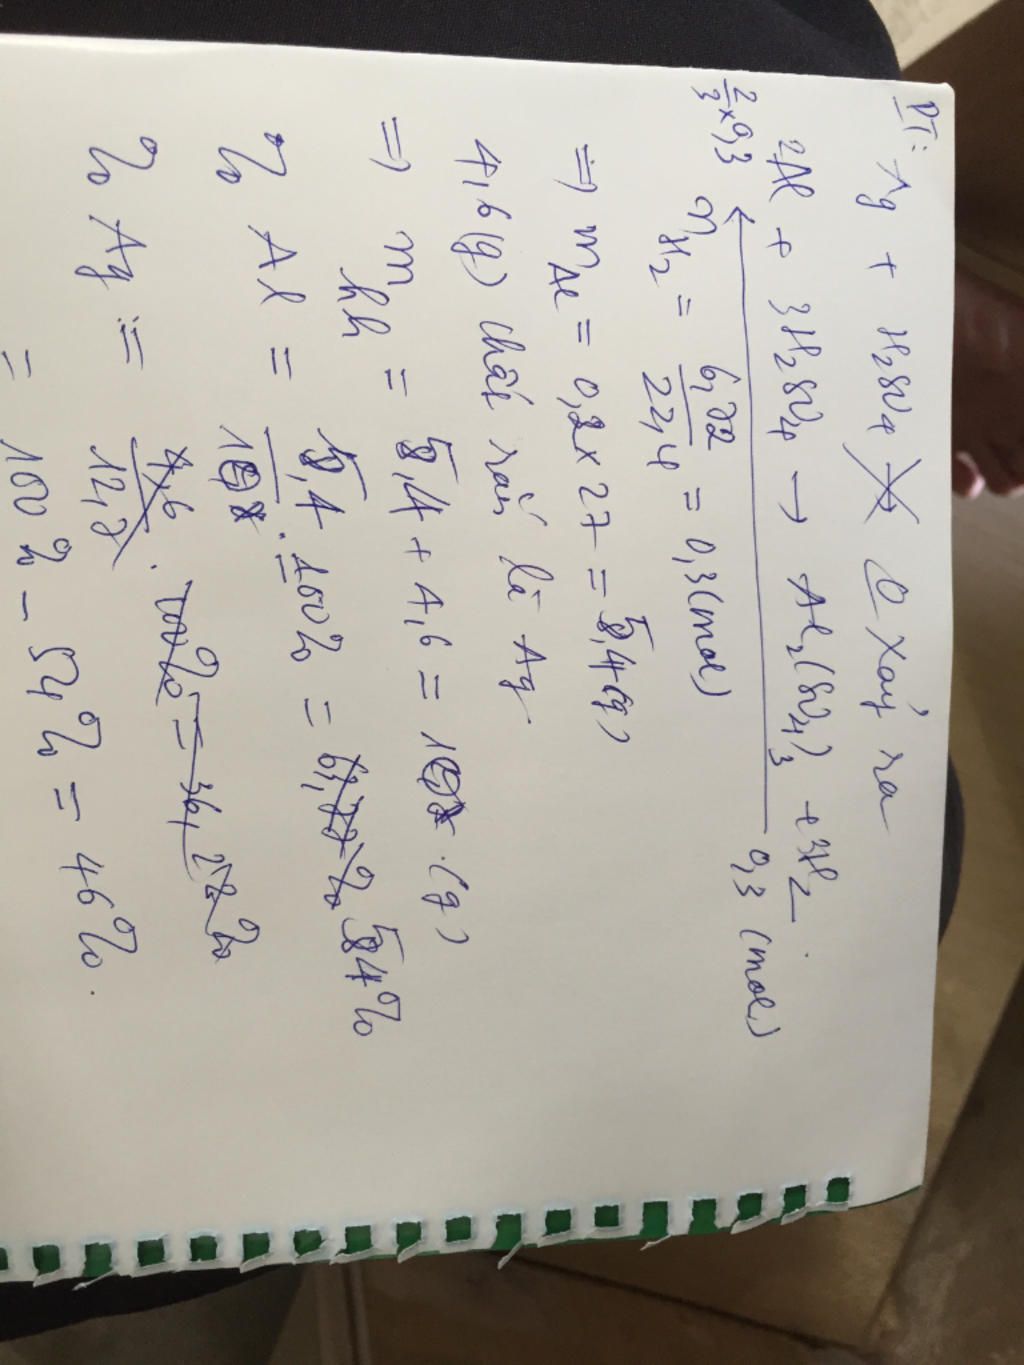 PT: Ag + H2SO4 ↛ 0 xảy ra
2Al + 3H2SO4 → Al2(SO4)3 + 3H2
2/3 x 0,3 ← 0,3 (mol)
nH2 = 6,72/22,4 = 0,3 (mol)
=> mAl = 0,2 x 27 = 5,4 (g)
4,6 (g) chất rắn là Ag
=> mhh = 5,4 + 4,6 = 10 (g)
% Al = 5,4/10 . 100% = 54%
% Ag = 4,6/12,7 . 100% = 36,22%
= 100% - 54% = 46%.